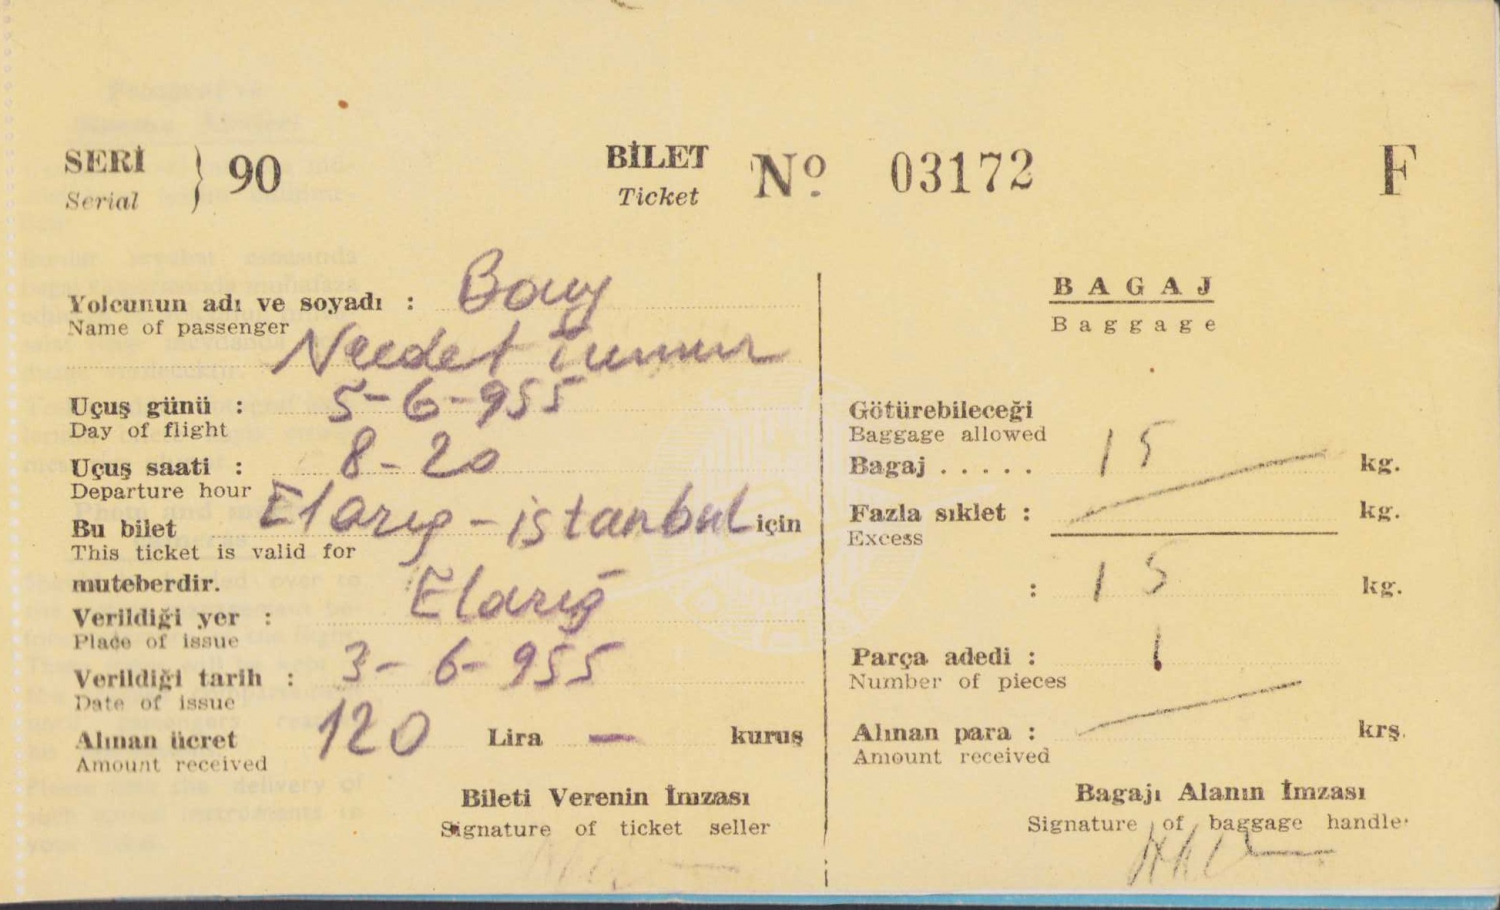 SERİ } 90
Serial
BİLET No 03172
Ticket
F
Yolcunun adı ve soyadı : Bay
Name of passenger
Necdet Tumur
Uçuş günü : 5-6-955
Day of flight
Uçuş saati : 8-20
Departure hour
Bu bilet Elazığ - istanbul için
This ticket is valid for
muteberdir.
Verildiği yer : Elazığ
Place of issue
Verildiği tarih : 3-6-955
Date of issue
Alınan ücret 120 Lira — kuruş
Amount received
Bileti Verenin İmzası
Signature of ticket seller
BAGAJ
Baggage
Götürebileceği
Baggage allowed
Bagaj . . . . . 15 kg.
Fazla sıklet : kg.
Excess
: 15 kg.
Parça adedi : 1
Number of pieces
Alınan para : krş.
Amount received
Bagajı Alanın İmzası
Signature of baggage handle